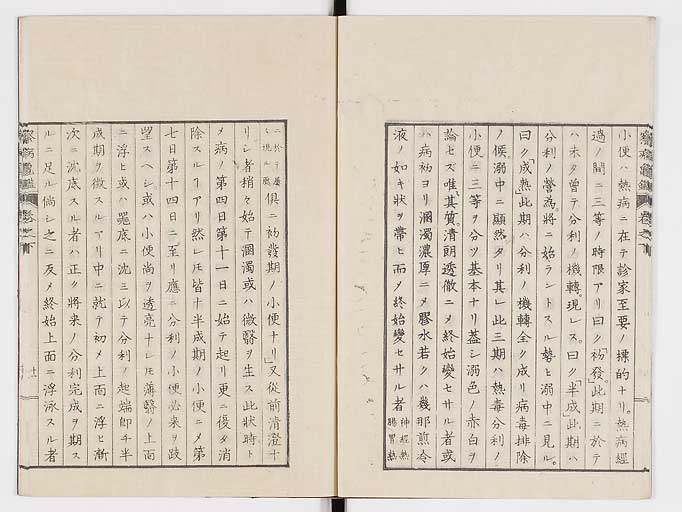 小便ハ熱病ニ在テ診家至要ノ標的ナリ。熱病經
過ノ間ニ三等ノ時限アリ曰ク「初發」此期ニ於テ
ハ未タ曽テ分利ノ機轉ヲ現レス。曰ク「半成」此期ハ
分利ノ營為將ニ始ラントスル勢ヒ溺中ニ見ル。
曰ク「成熟」此期ハ分利ノ機轉全ク成リ病毒排除
ノ候溺中ニ顯然タリ其レ此三期ハ熱毒分利ノ
小便ニ三等ヲ分ツ基本ナリ蓋シ溺色ノ赤白ヲ
論セズ唯其質清朗透徹ニメ終始變セサル者或
ハ病初ヨリ溷濁濃厚ニメ膠水若クハ幾那煎冷
液ノ如キ状ヲ帶ヒ而メ終始變セサル者 神經熱 腸胃熱
ニ於テ屢 現ル處 俱ニ初發期ノ小便ナリ」又從前清澄ナ
リシ者稍々始テ溷濁或ハ微翳ヲ生ス此状時ト
メ病ノ第四日第十一日ニ始テ起リ更ニ復タ消
除スルヿアリ然レ𪜈皆ナ半成期ノ小便ニメ第
七日第十四日ニ至リ應ニ分利ノ小便必来ヲ
望スヘシ或ハ小便尚ヲ透亮ナレ𪜈薄翳ノ上面
ニ浮ヒ或ハ器底ニ沈ミ以テ分利ノ起端即チ半
成期ヲ徴スルヿアリ中ニ就テ初メ上面ニ浮ヒ漸
次ニ沈底スル者ハ正ク將来ノ分利完成ヲ期ス
ルニ足ル倘シ之ニ反メ終始上面ニ浮泳スル者
察病龜鑑 卷之下